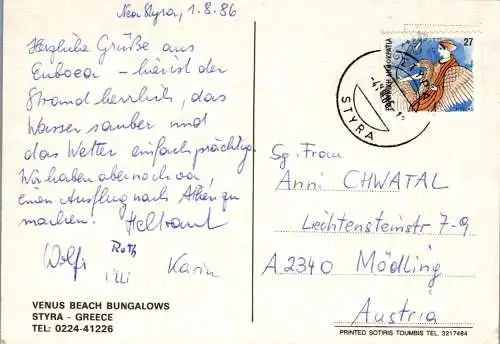 Nea Styra, 1.8.86
Herzliche Grüße aus
Euboea – hier ist der
Strand herrlich, das
Wasser sauber und
das Wetter einfach prächtig.
Wir haben aber noch vor,
einen Ausflug nach Athen zu
machen! Heltraut
Wolfi Ruth
Karin
VENUS BEACH BUNGALOWS
STYRA - GREECE
TEL: 0224-41226
27
ΕΛΛΗΝΙΚΗ ΔΗΜΟΚΡΑΤΙΑ
STYRA
Sg. Frau
Anni CHWATAL
Liechtensteinstr 7-9
A 2340 Mödling
Austria
PRINTED SOTIRIS TOUMBIS TEL. 3217484